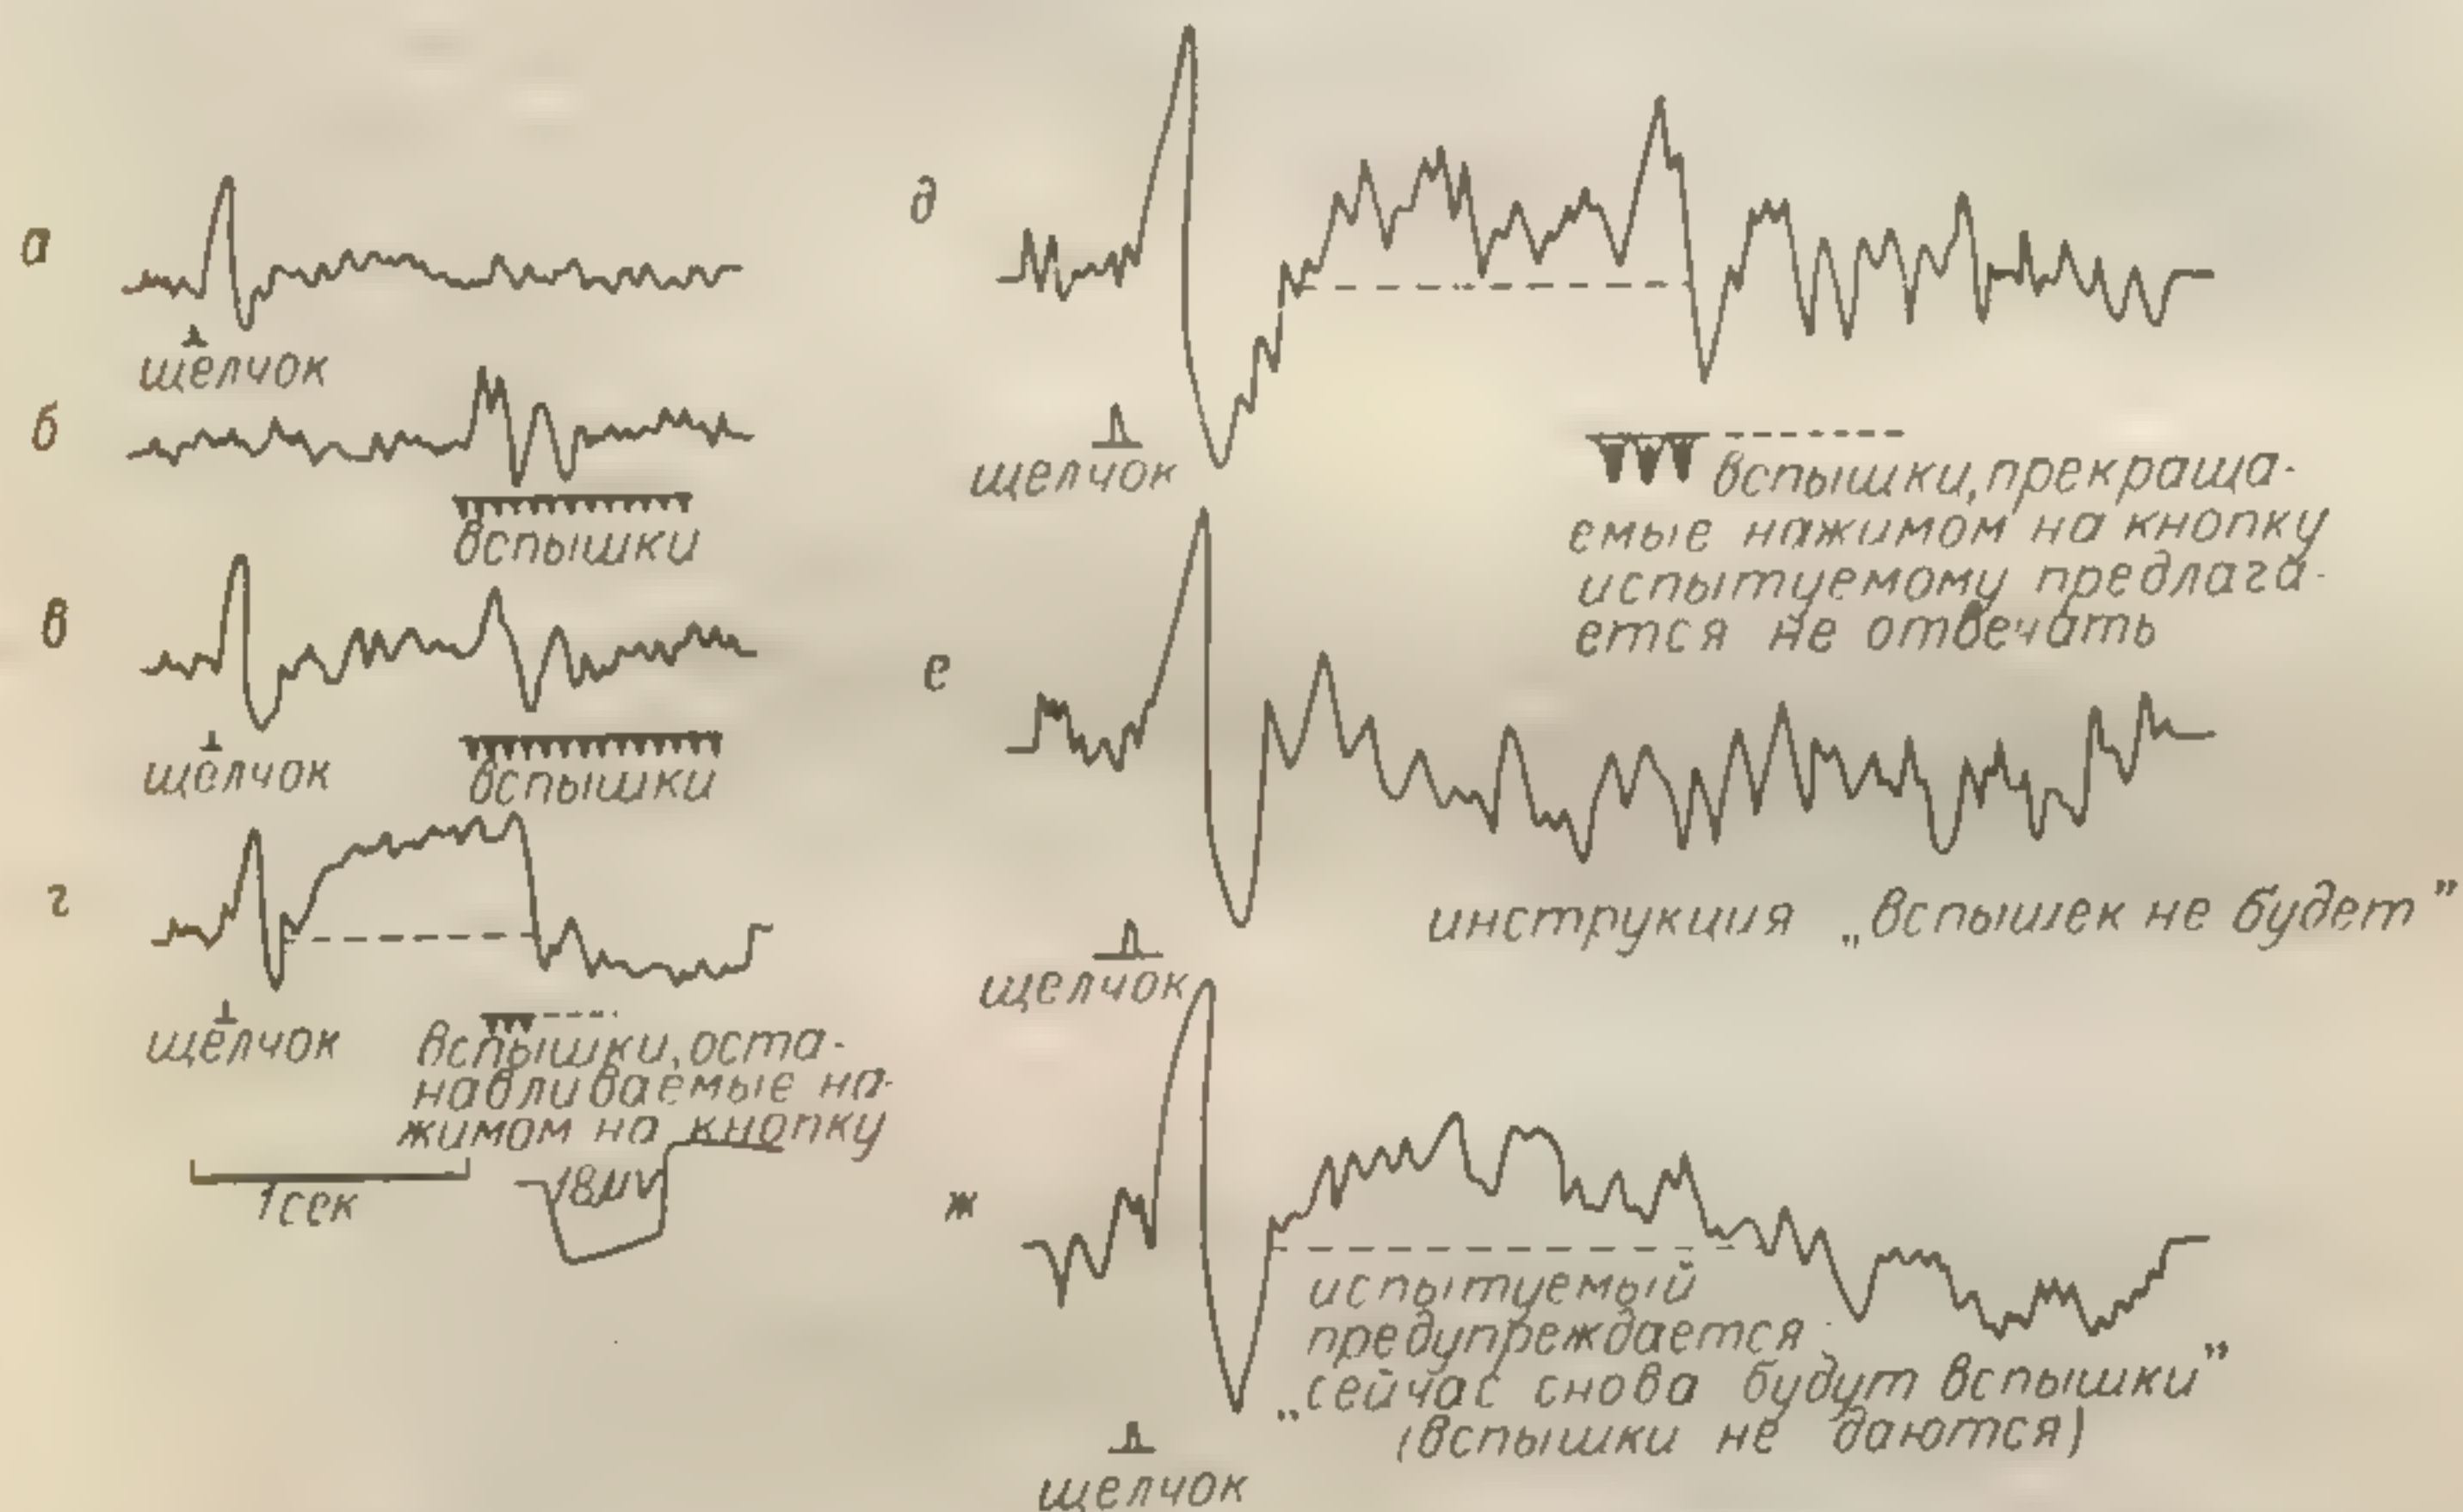 а
щелчок
б
вспышки
в
щелчок
вспышки
г
щелчок
вспышки, оста-
навливаемые на-
жимом на кнопку
1 сек
18μv
д
щелчок
вспышки, прекраща-
емые нажимом на кнопку
испытуемому предлага-
ется не отвечать
е
щелчок
инструкция „вспышек не будет”
ж
щелчок
испытуемый
предупреждается
„сейчас снова будут вспышки”
(вспышки не даются)